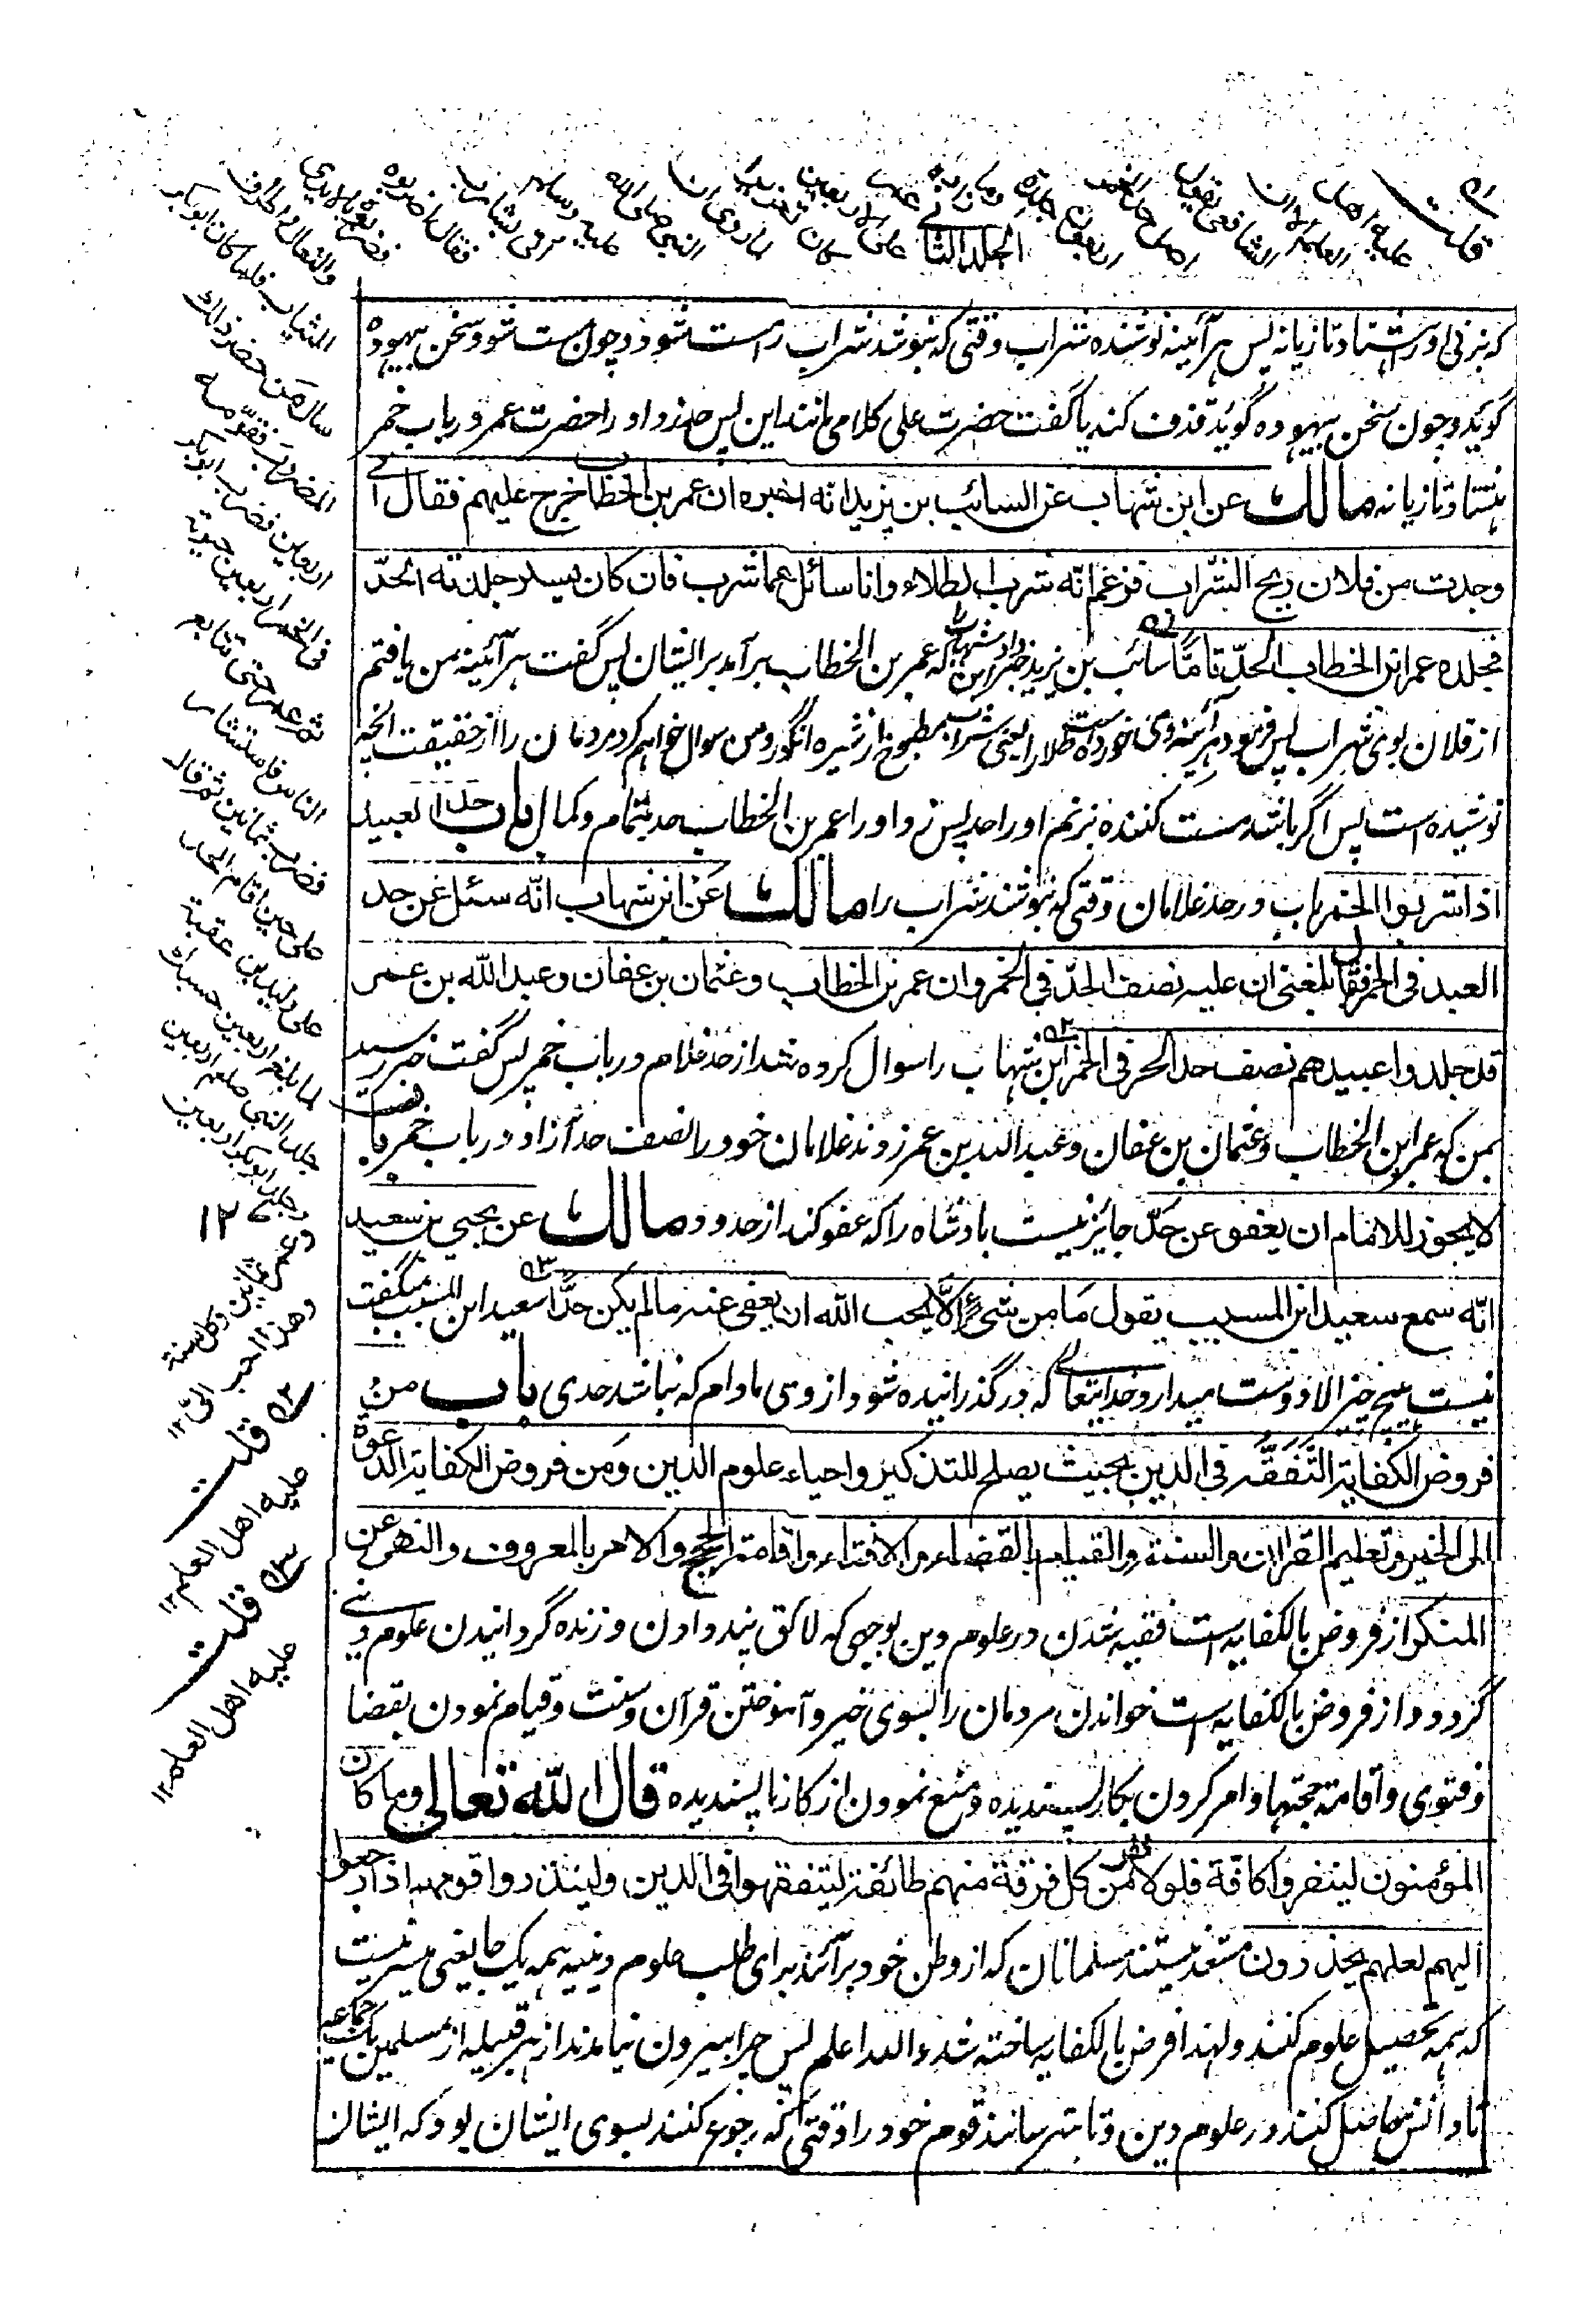 که بزنی او را هشتاد تازیانه پس هر آئینه نوشنده شراب وقتی که بنوشد شراب را مست شود و چون مست شود سخن بیهوده
گوید و چون سخن بیهوده گوید قذف کند یا گفت حضرت علی کلامی مانند این پس حد زد او را حضرت عمر در باب خمر
هشتاد تازیانه مالك عن ابن شهاب عن السائب بن یزید انه اخبره ان عمر بن الخطاب خرج علیهم فقال انی
وجدت من فلان ریح الشراب فزعم انّه شرب الطلاء وانا سائل عما شرب فان کان یسکر جلدته الحدّ
فجلده عمر ابن الخطاب الحدّ تامّا سائب بن یزید خبر داد ابن شهاب را که عمر بن الخطاب برآمد بر ایشان پس گفت هر آئینه من یافتم
از فلان بوی شراب پس فرمود هر آئینه وی خورده است طلا را یعنی شراب مطبوخ از شیره انگور و من سوال خواهم کرد مردمان را از حقیقت آنچه
نوشیده است پس اگر باشد مست کننده بزنم او را حد پس زد او را عمر بن الخطاب حد بتمام و کمال باب حد العبید
اذا شربوا الخمر باب در حد غلامان وقتی که بنوشند شراب را مالك عن ابن شهاب انّه سئل عن حد
العبد فی الخمر فقال بلغنی ان علیه نصف الحدّ فی الخمر وان عمر بن الخطاب وعثمان بن عفان وعبد الله بن عمر
قد جلدوا عبیدهم نصف حد الحر فی الخمر ابن شهاب را سوال کرده شد از حد غلام در باب خمر پس گفت خبر رسید
بمن که عمر ابن الخطاب و عثمان بن عفان و عبد الله بن عمر زدند غلامان خود را نصف حد آزاد در باب خمر باب
لا یجوز للامام ان یعفو عن حدّ جایز نیست بادشاه را که عفو کند از حدود مالك عن یحیی بن سعید
انّه سمع سعید ابن المسیب یقول ما من شیء الّا یحب الله ان یعفی عنه ما لم یکن حدّا سعید ابن المسیب میگفت
نیست هیچ چیز الا دوست میدارد خدایتعالی که در گذرانیده شود از وی مادام که نباشد حدی باب من
فروض الکفایة التّفقّه فی الدین بحیث یصلح للتذکیر واحیاء علوم الدین ومن فروض الکفایة الدعوة
الی الخیر وتعلیم القران والسنة والقیام بالقضاء والافتاء واقامة الحجج والامر بالمعروف والنهی عن
المنکر از فروض بالکفایه است فقیه شدن در علوم دین بوجهی که لائق پند دادن و زنده گردانیدن علوم دینی
گردد و از فروض بالکفایه است خواندن مردمان را بسوی خیر و آموختن قرآن و سنت و قیام نمودن بقضا
و فتوی و اقامة حجتها و امر کردن بکار پسندیده و منع نمودن از کار ناپسندیده قال الله تعالی وما کان
المؤمنون لینفروا کافة فلولا نفر من کل فرقة منهم طائفة لیتفقهوا فی الدین ولینذروا قومهم اذا رجعوا
الیهم لعلهم یحذرون مستعد نیستند مسلمانان که از وطن خود برآیند برای طلب علوم دینیه همه یک جا یعنی میسر نیست
که همه تحصیل علوم کنند ولهذا فرض بالکفایه ساخته شد والله اعلم پس چرا بیرون نیامدند از هر قبیله از مسلمین یک جماعه
تا دانش حاصل کنند در علوم دین و تا بترسانند قوم خود را وقتی که رجوع کنند بسوی ایشان بود که ایشان
قلت
علیه اهل
العلم الا ان
الشافعی یقول
اصل حد الخمر
اربعون جلدة
وما زاده
عمر
علی الاربعین
کان تعزیرا
لما روی ان
النبی صلی الله
علیه وسلم
اتی بشارب
فقال اضربوه
فضربوه بالایدی
والنعال واطراف
الثیاب فلما کان ابو بکر
سال من حضر ذلك
المضروب فقوّمه
اربعین فضرب ابو بکر
فی الخمر اربعین حیوته
ثم عمر حتی تتابع
الناس فاستشار
فضرب ثمانین ثم قال
علی حین اقام الحد
علی ولید بن عقبة
لما بلغ اربعین حسبك
جلد النبی صلعم اربعین
وجلد ابو بکر اربعین
وعمر ثمانین وکل سنة
وهذا احب الیّ ۱۲
الجلد الثانی
۱۲
۵۲ قلت
علیه اهل العلم ۱۲
۵۳ قلت
علیه اهل العلم ۱۲